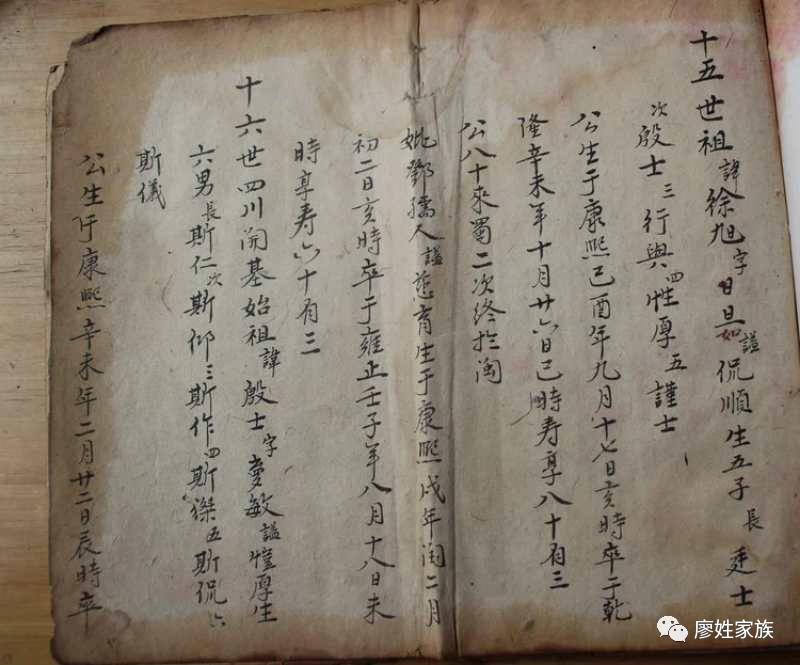 十五世祖諱徐旭字日旦謚侃順生五子長廷士
次殷士三行與四性厚五謹士
公生于康熙己酉年九月十七日亥時卒于乾
隆辛未年十月廿六日巳時寿享八十有三
公八十來蜀二次終於
妣鄧孺人謚慈育生于康熙戌年閏二月
初二日亥時卒于雍正壬子年八月十八日未
時享寿六十有三
十六世四川開基始祖諱殷士字敏謚愷厚生
六男長斯仁次斯仰三斯作四斯傑五斯侃六
斯儀
公生于康熙辛未年二月廿二日辰時卒
廖姓家族